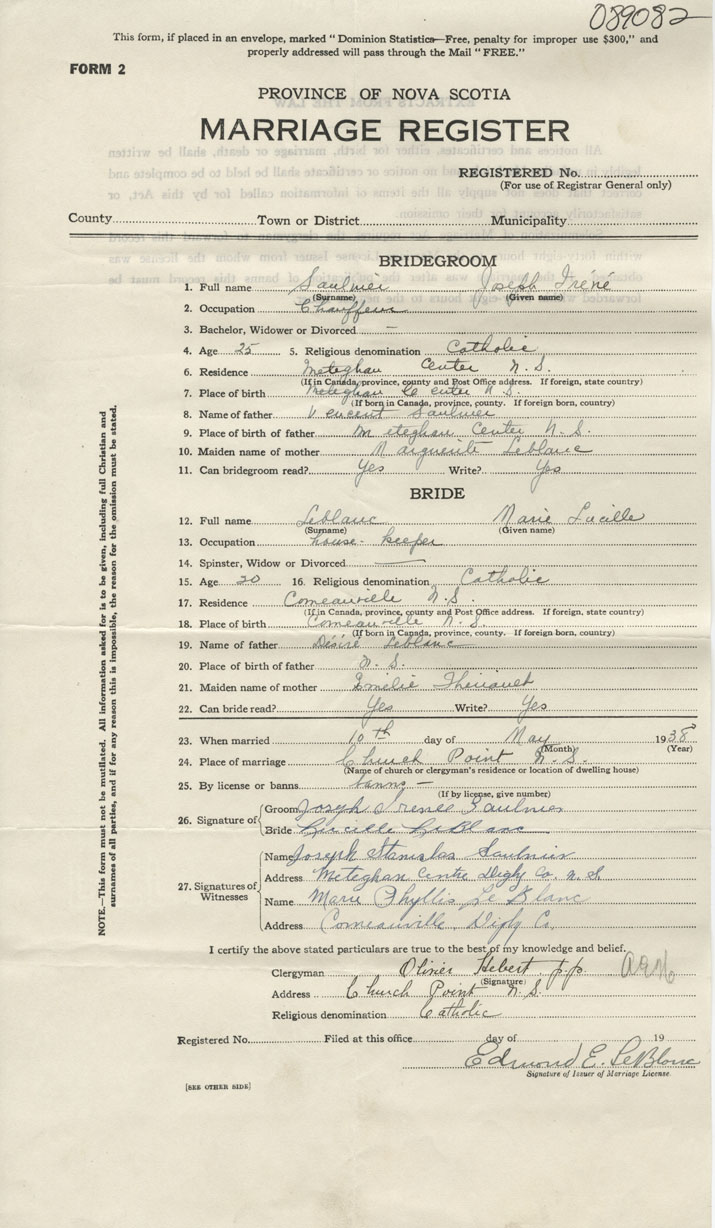 089082
This form, if placed in an envelope, marked "Dominion Statistics—Free, penalty for improper use $300," and
properly addressed will pass through the Mail "FREE."
FORM 2
PROVINCE OF NOVA SCOTIA
MARRIAGE REGISTER
REGISTERED No.
(For use of Registrar General only)
County Town or District Municipality
BRIDEGROOM
1. Full name Saulnier Joseph Irené
(Surname) (Given name)
2. Occupation Chauffeur
3. Bachelor, Widower or Divorced —
4. Age 25 5. Religious denomination Catholic
6. Residence Meteghan Center N. S.
(If in Canada, province, county and Post Office address. If foreign, state country)
7. Place of birth Meteghan Center N. S.
(If born in Canada, province, county. If foreign born, country)
8. Name of father Vencent Saulnier
9. Place of birth of father Meteghan Center N. S.
10. Maiden name of mother Marguerite Leblanc
11. Can bridegroom read? Yes Write? Yes
BRIDE
12. Full name Leblanc Marie Lucille
(Surname) (Given name)
13. Occupation house-keeper
14. Spinster, Widow or Divorced —
15. Age 20 16. Religious denomination Catholic
17. Residence Comeauville N.S.
(If in Canada, province, county and Post Office address. If foreign, state country)
18. Place of birth Comeauville N. S.
(If born in Canada, province, county. If foreign born, country)
19. Name of father Désiré Leblanc
20. Place of birth of father N. S.
21. Maiden name of mother Emelie
22. Can bride read? Yes Write? Yes
23. When married 10th day of May 1938
(Month) (Year)
24. Place of marriage Church Point N. S.
(Name of church or clergyman's residence or location of dwelling house)
25. By license or banns banns —
(If by license, give number)
26. Signature of Groom Joseph Irenee Saulnier
Bride Lucille LeBlanc
27. Signatures of Witnesses
Name Joseph Stanislas Saulnier
Address Meteghan Centre Digby Co. N. S.
Name Marie Phyllis Le Blanc
Address Comeauville, Digby Co.
I certify the above stated particulars are true to the best of my knowledge and belief.
Clergyman Olivier Hebert p.p.
(Signature)
Address Church Point N. S.
Religious denomination Catholic
Registered No. Filed at this office day of 19
Edmond E. LeBlanc
Signature of Issuer of Marriage License.
[SEE OTHER SIDE]
NOTE.—This form must not be mutilated. All information asked for is to be given, including full Christian and
surnames of all parties, and if for any reason this is impossible, the reason for the omission must be stated.